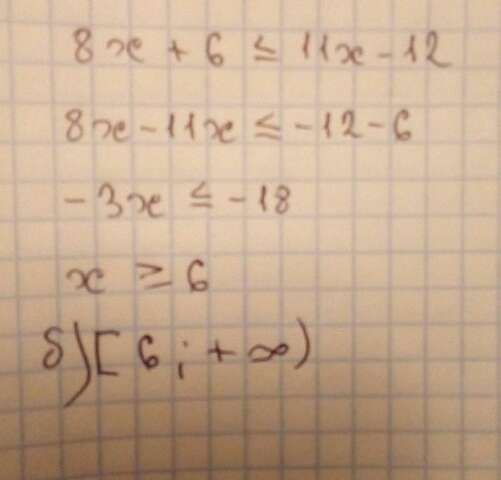 8x + 6 ≤ 11x - 12
8x - 11x ≤ -12 - 6
-3x ≤ -18
x ≥ 6
б) [6; +∞)